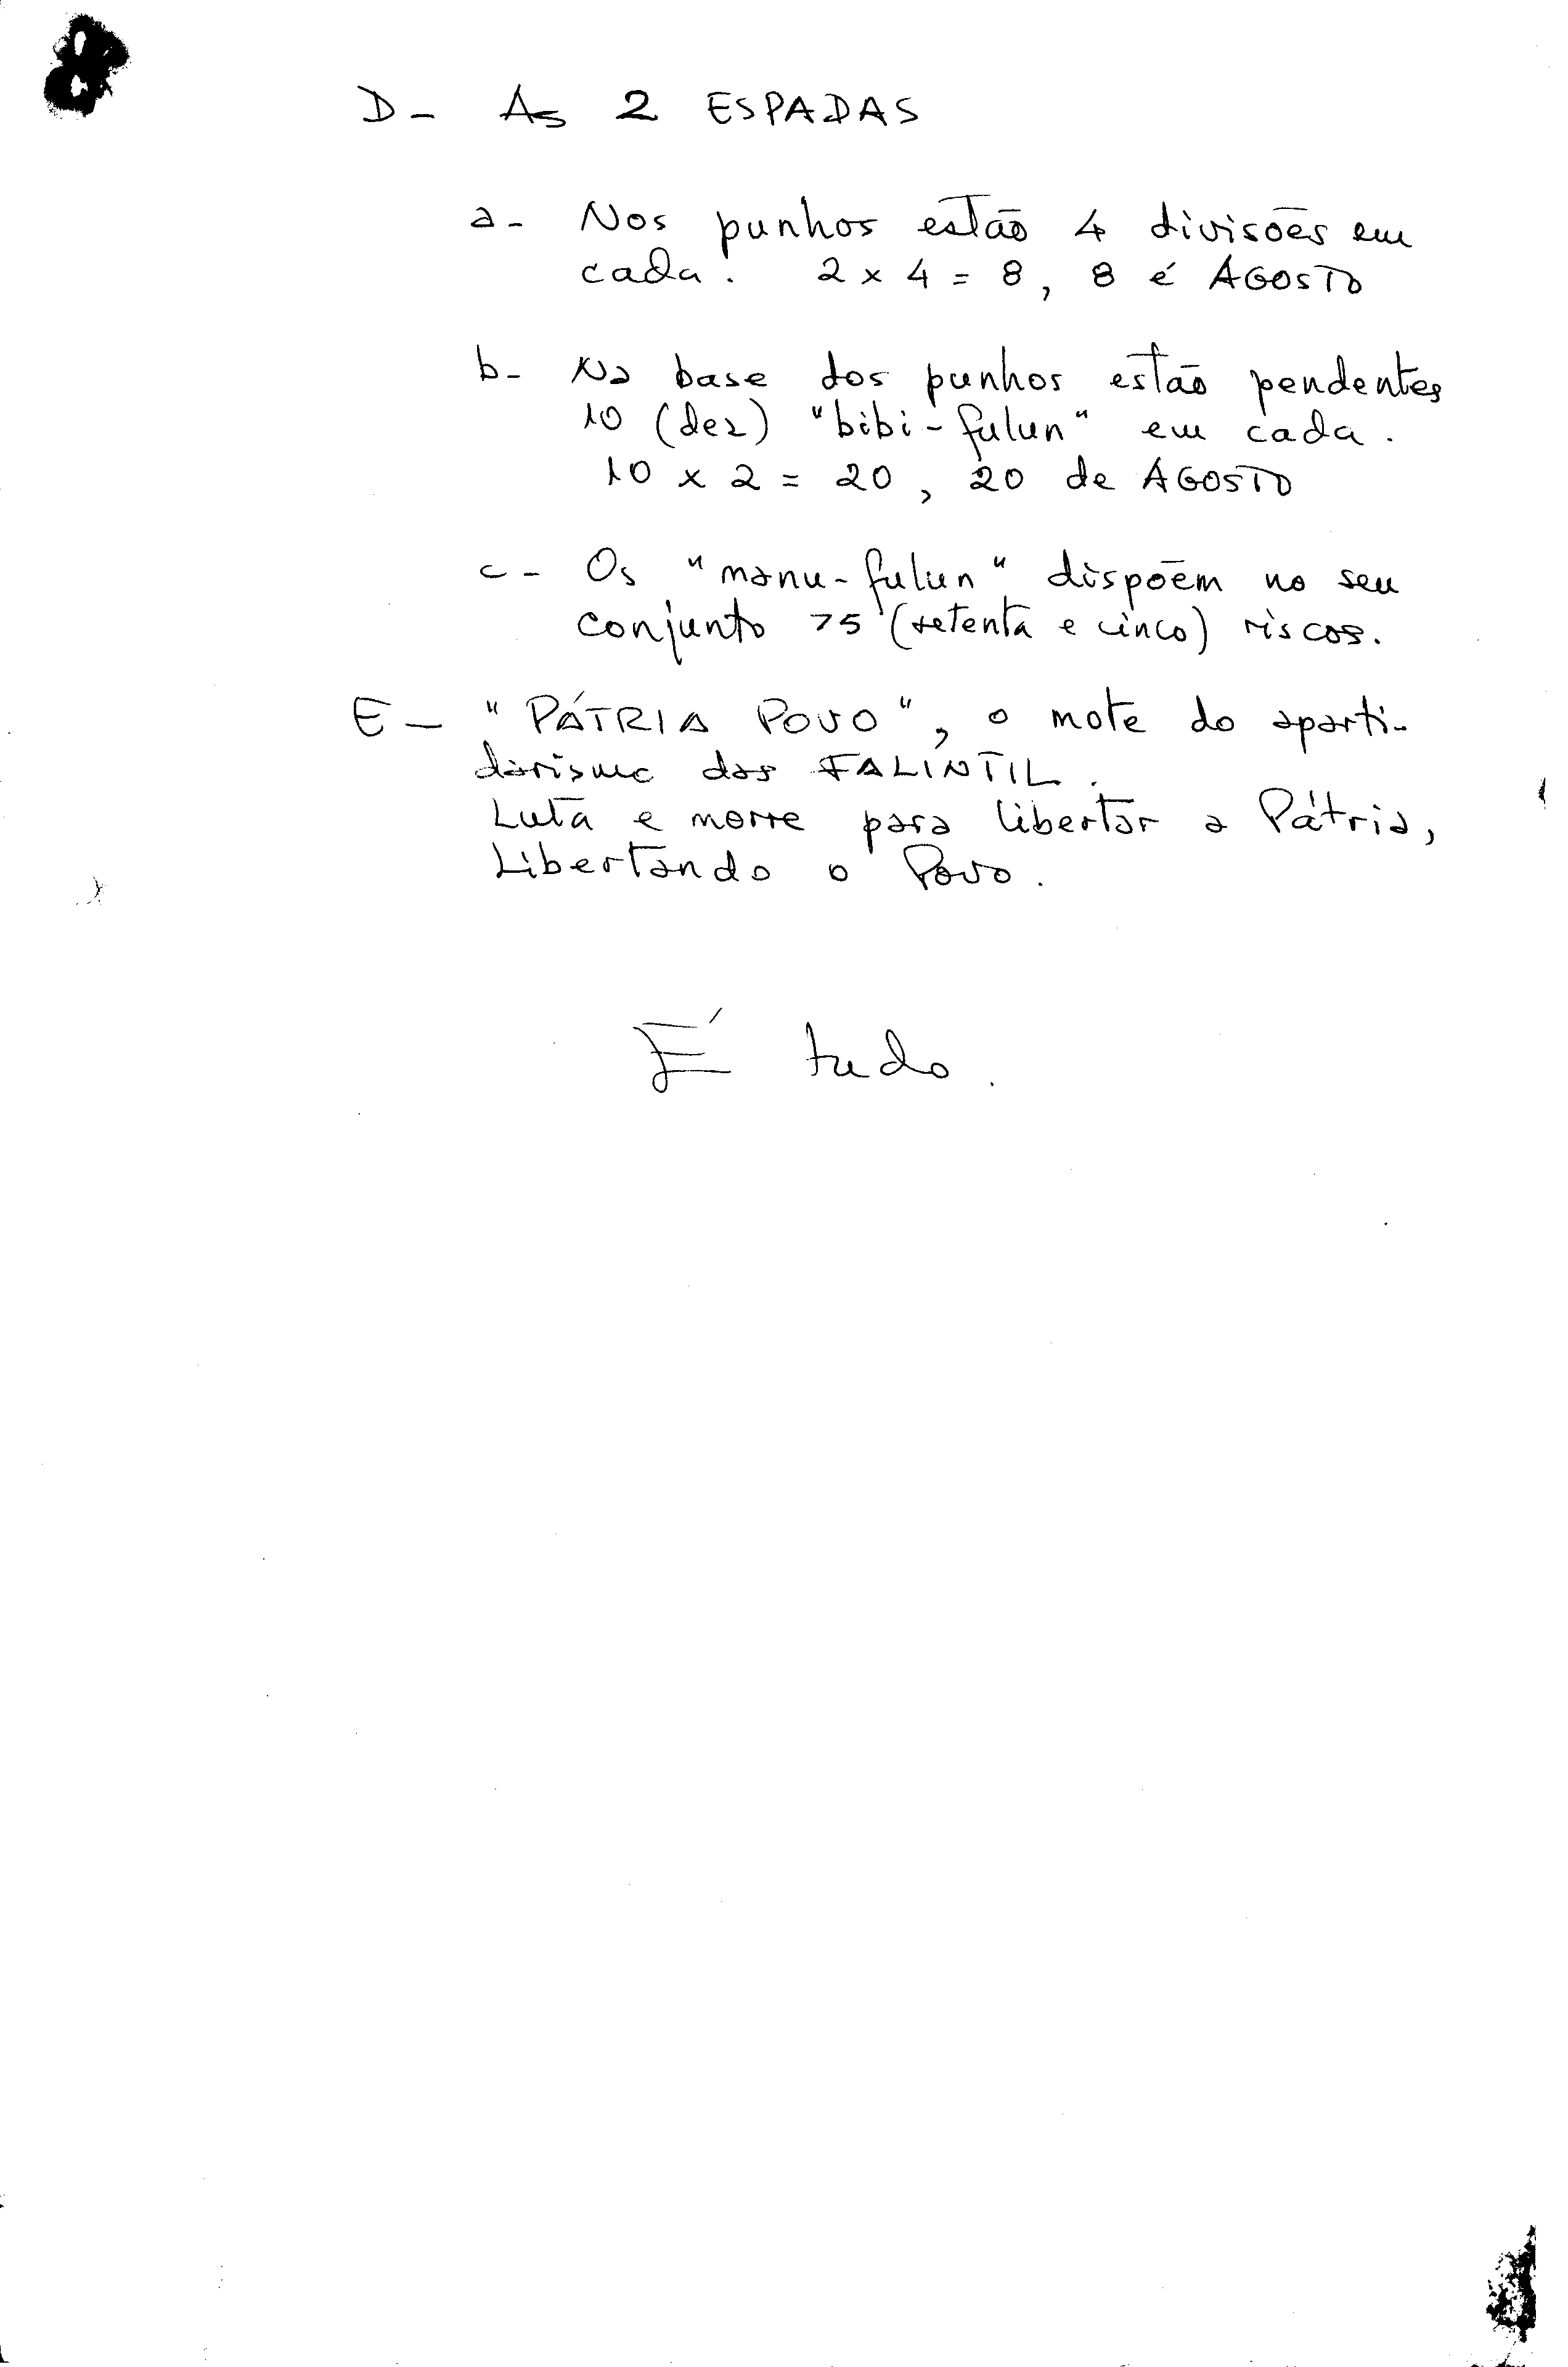 D- As 2 ESPADAS
a- Nos punhos estão 4 divisões em
cada. 2 x 4 = 8, 8 é AGOSTO
b- Na base dos punhos estão pendentes
10 (dez) "bibi-fulun" em cada.
10 x 2 = 20, 20 de AGOSTO
c- Os "manu-fulun" dispõem no seu
conjunto 75 (setenta e cinco) riscos.
E- "PÁTRIA POVO", o mote do aparti-
darismo das FALINTIL.
Luta e morre para libertar a Pátria,
Libertando o Povo.
É tudo.